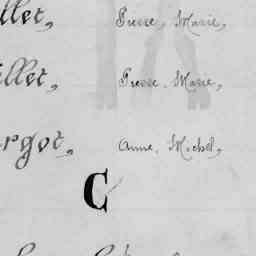 llet, Pierre, Marie,
illet, Pierre, Marie,
rgot, Anne, Michel,
C